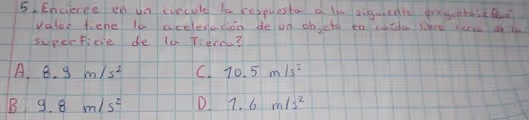 5. Encierre en un circulo la respuesta a la siguiente pregunta: ¿Qué
valor tiene la aceleración de un objeto en caída libre cerca de la
superficie de la Tierra?
A. 8.9 m/s² C. 10.5 m/s²
B 9.8 m/s² D. 1.6 m/s²